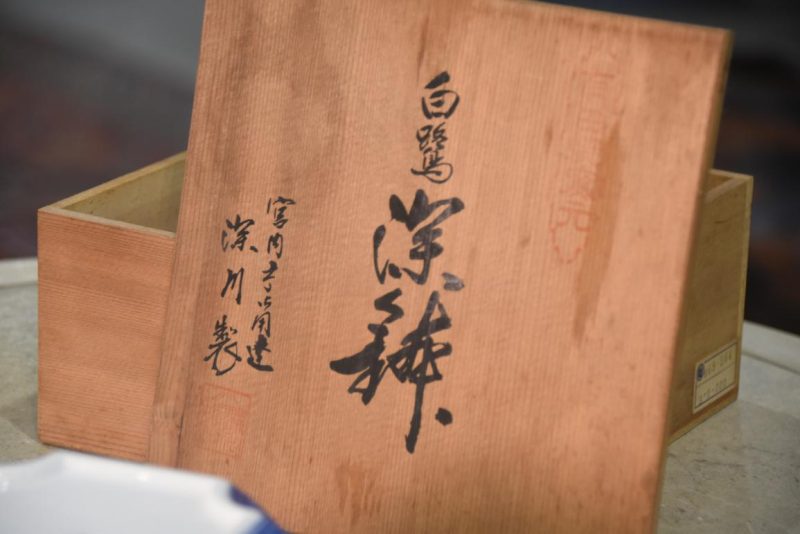 白鷺
深鉢
宮内庁御用達
深川製